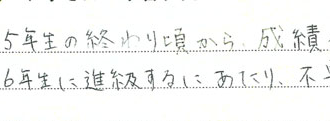 5年生の終わり頃から、成績
6年生に進級するにあたり、不